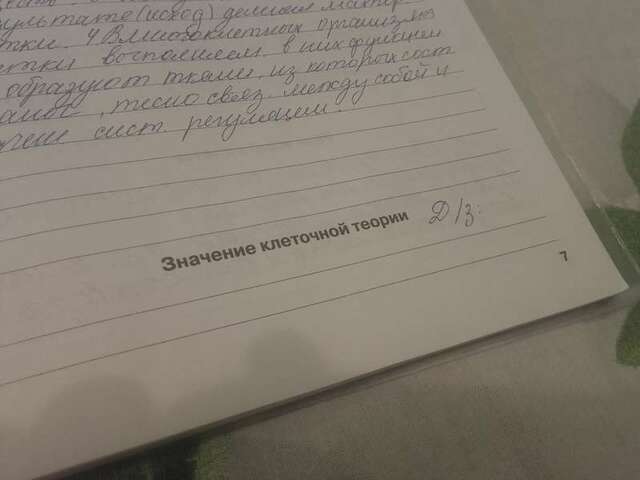 (исход) деления матер.
4) В многоклеточных организмах
в них функции
образуют ткани, из которых сост
, тесно связ. между собой и
сист. регуляции.
Значение клеточной теории Д/з:
7